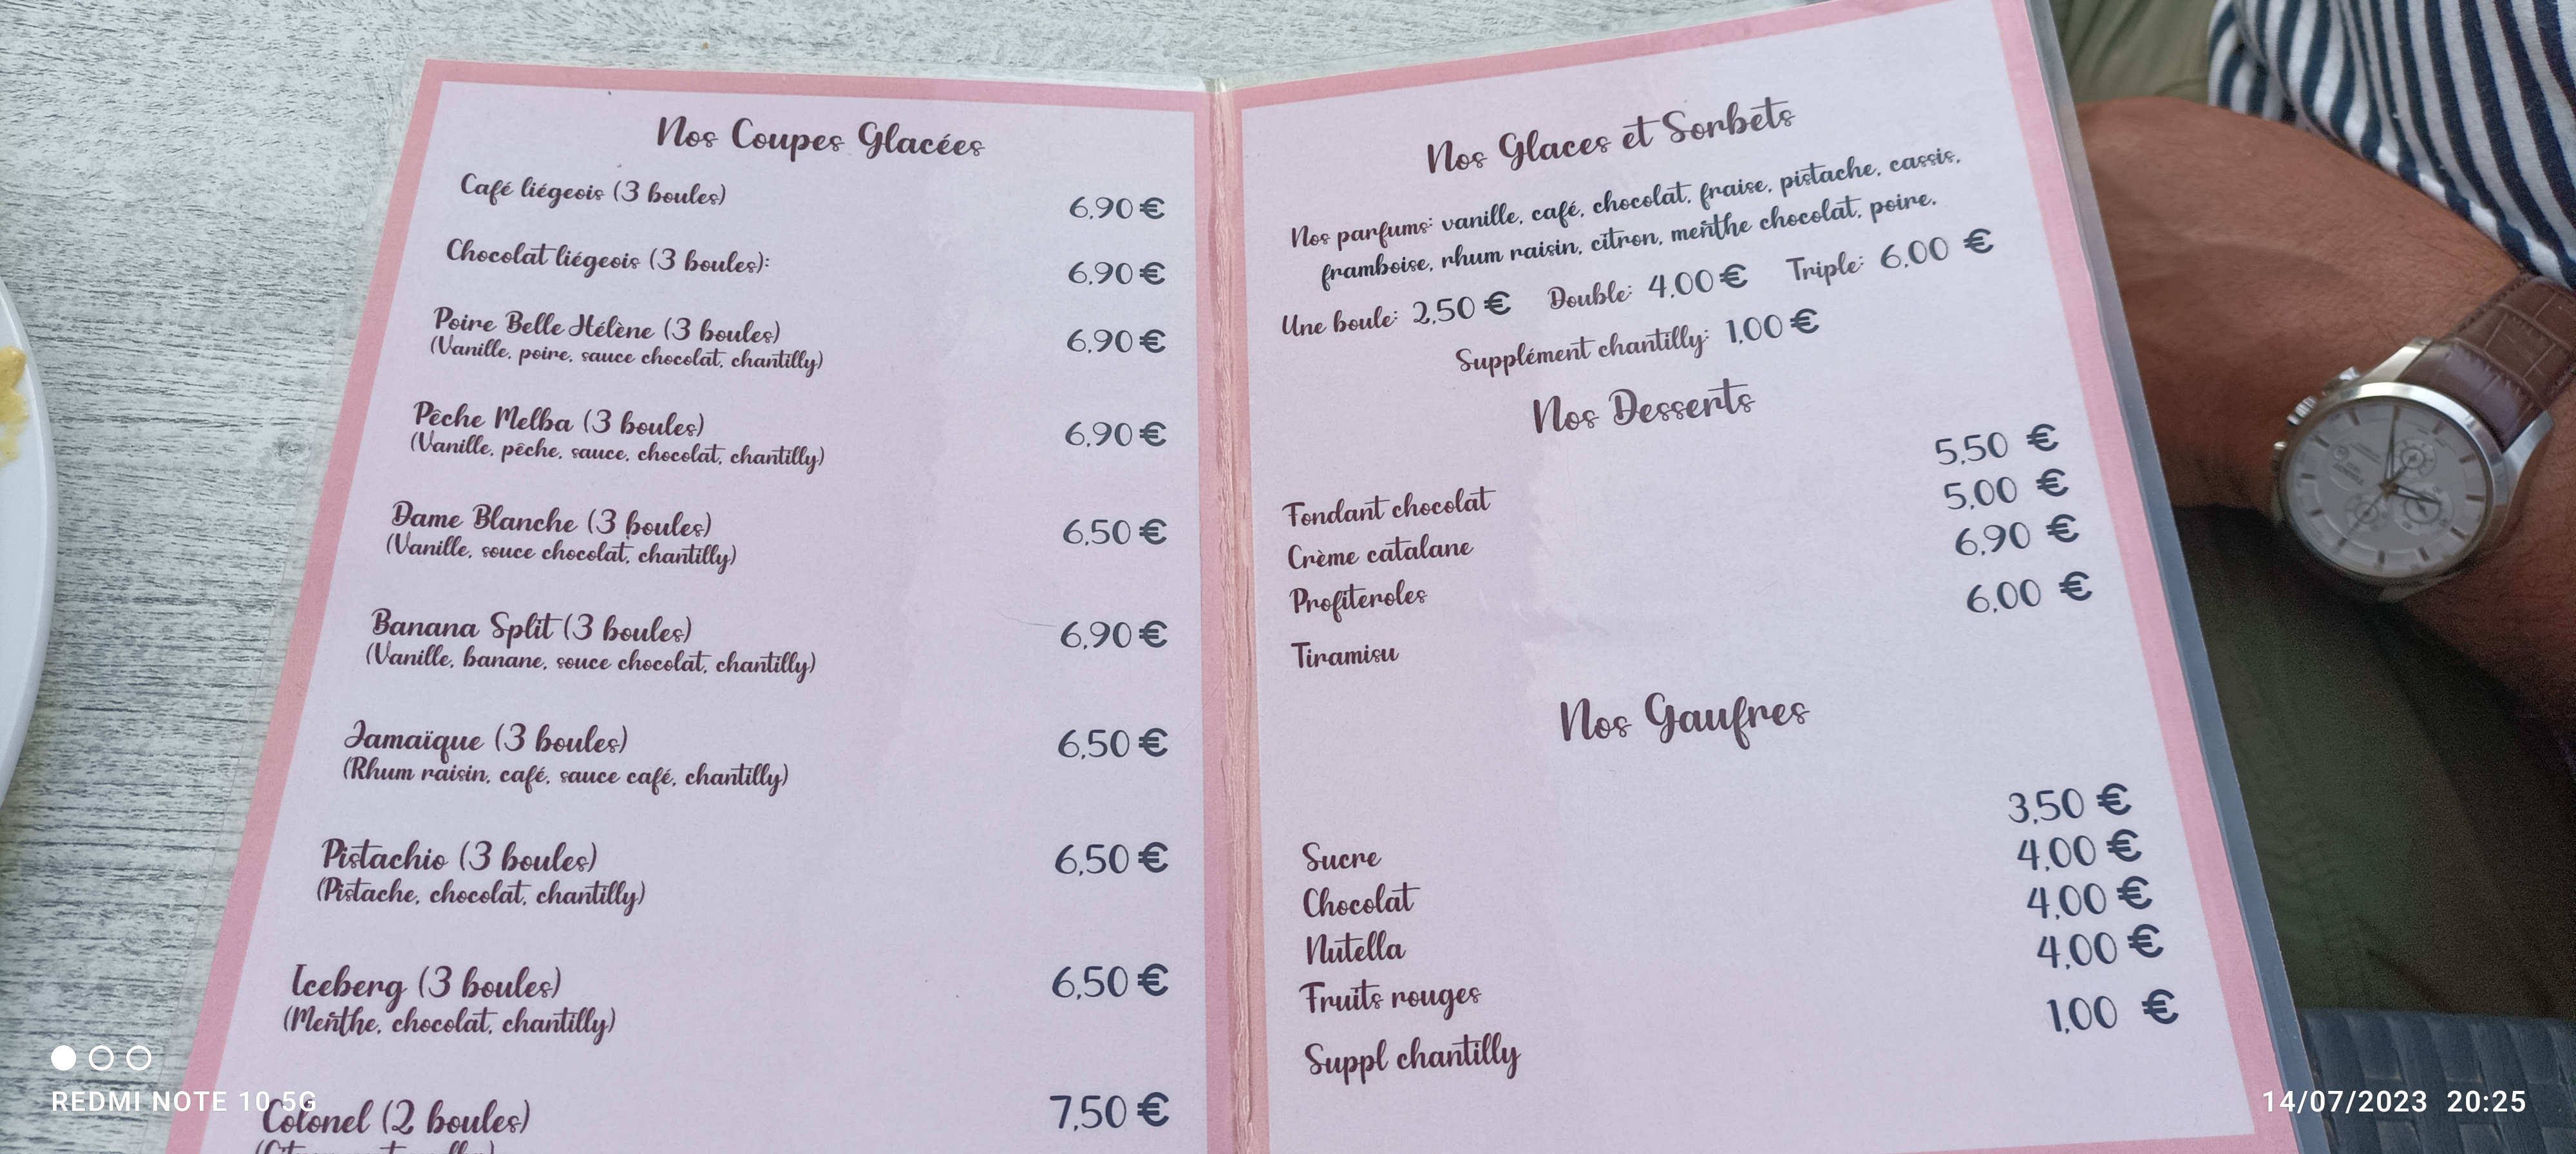 Nos Coupes Glacées
Café liégeois (3 boules) 6,90 €
Chocolat liégeois (3 boules): 6,90 €
Poire Belle Hélène (3 boules) 6,90 €
(Vanille, poire, sauce chocolat, chantilly)
Pêche Melba (3 boules) 6,90 €
(Vanille, pêche, sauce, chocolat, chantilly)
Dame Blanche (3 boules) 6,50 €
(Vanille, souce chocolat, chantilly)
Banana Split (3 boules) 6,90 €
(Vanille, banane, souce chocolat, chantilly)
Jamaïque (3 boules) 6,50 €
(Rhum raisin, café, sauce café, chantilly)
Pistachio (3 boules) 6,50 €
(Pistache, chocolat, chantilly)
Iceberg (3 boules) 6,50 €
(Menthe, chocolat, chantilly)
Colonel (2 boules) 7,50 €
Nos Glaces et Sorbets
Nos parfums: vanille, café, chocolat, fraise, pistache, cassis,
framboise, rhum raisin, citron, menthe chocolat, poire.
Une boule: 2,50 € Double: 4,00 € Triple: 6,00 €
Supplément chantilly: 1,00 €
Nos Desserts
Fondant chocolat 5,50 €
Crème catalane 5,00 €
Profiteroles 6,90 €
Tiramisu 6,00 €
Nos Gaufres
Sucre 3,50 €
Chocolat 4,00 €
Nutella 4,00 €
Fruits rouges 4,00 €
Suppl chantilly 1,00 €
REDMI NOTE 10 5G
14/07/2023 20:25